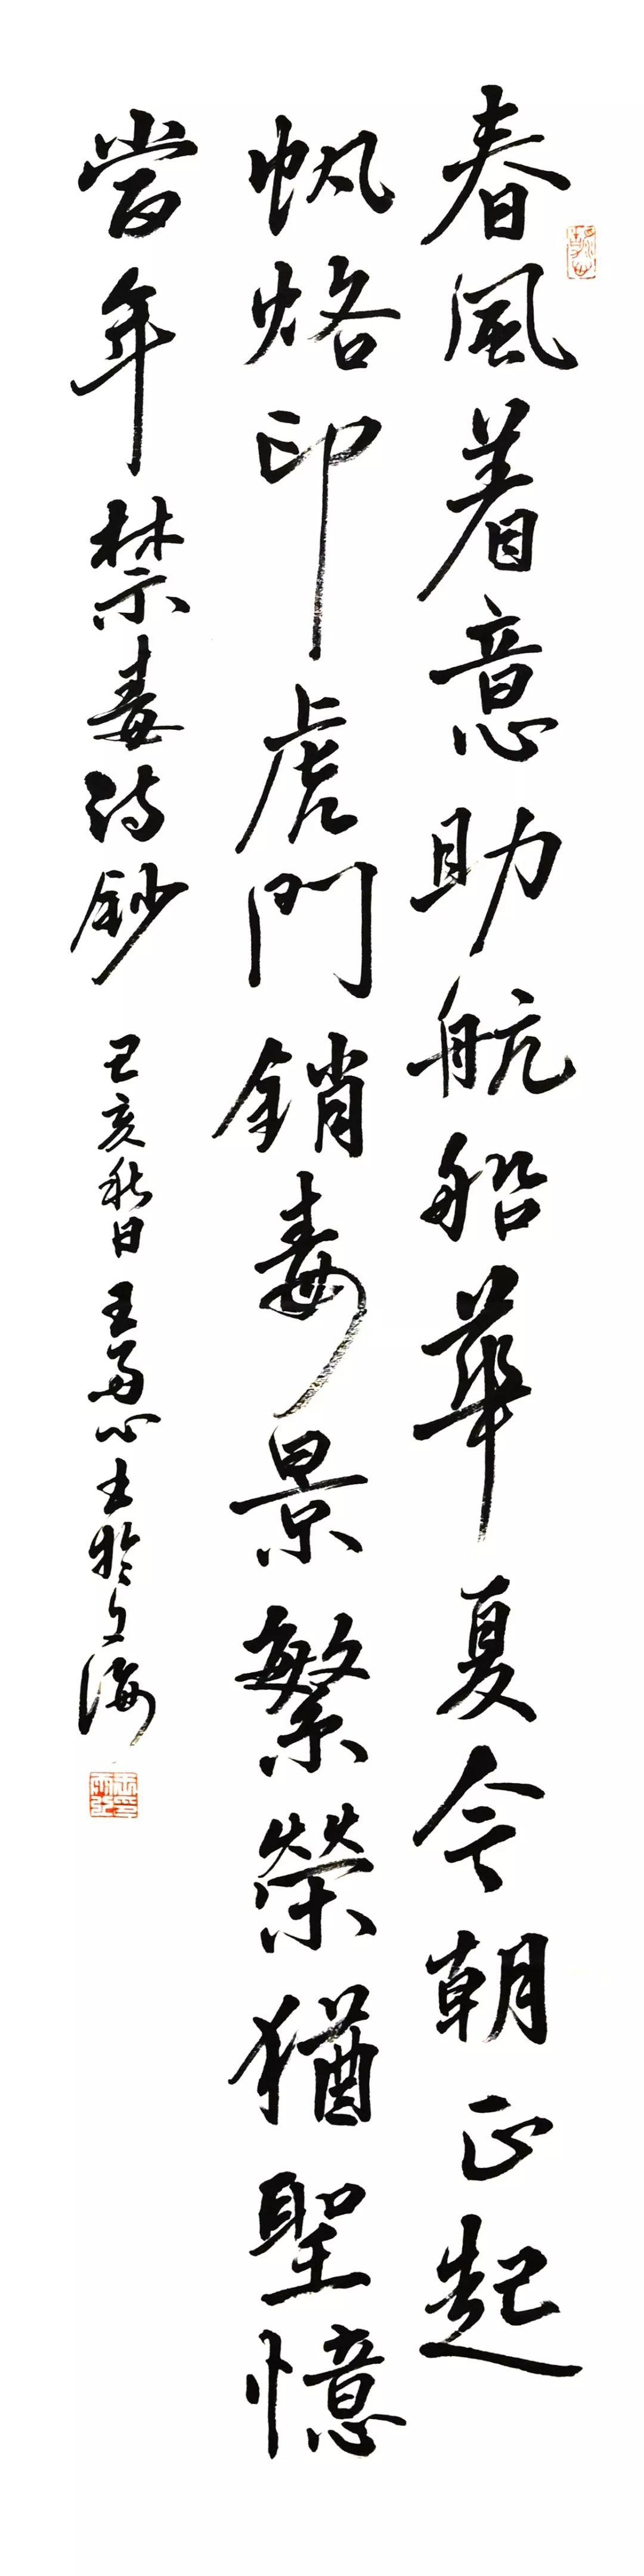 春風着意助航船華夏今朝正起
帆烙印虎門銷毒景繁榮猶聖憶
當年禁毒詩鈔 己亥秋日王雨心書於上海